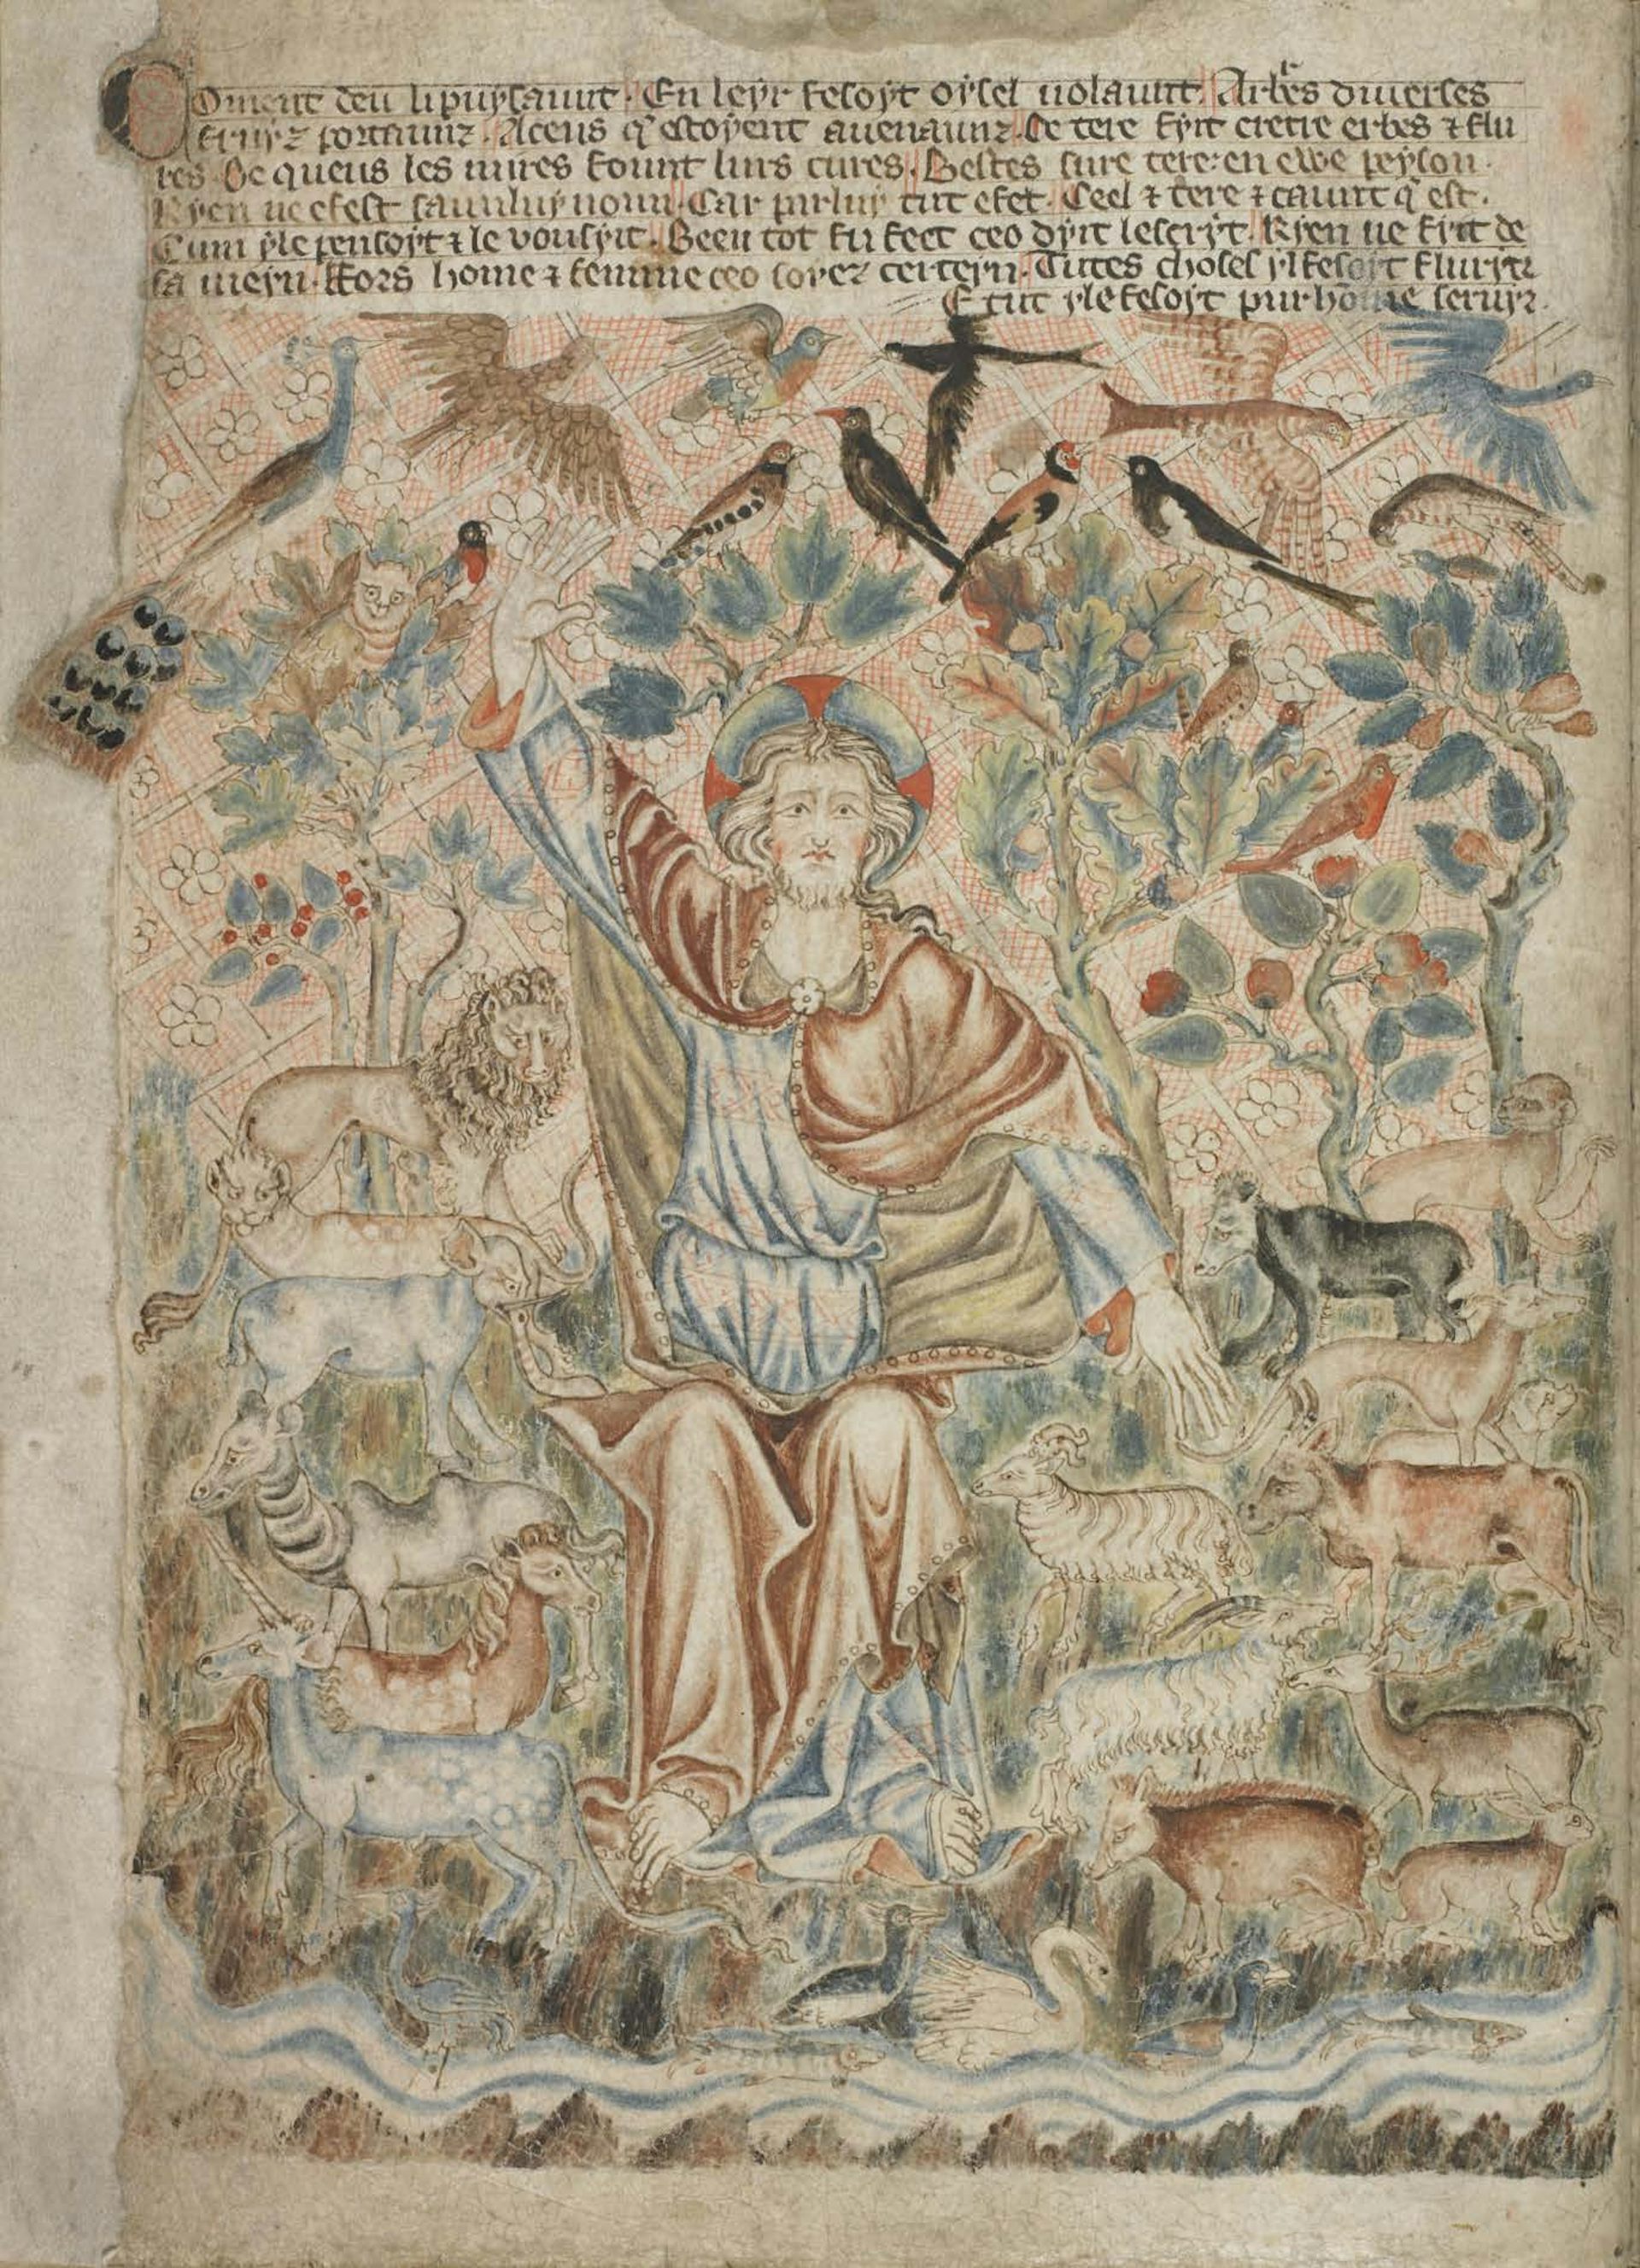 Coment deu li puysaunt. En leyr fesoyt oysel uolaunt. Arbres diuerses
fruyz portaunz. A ceus q̃ estoyent auenaunz. De tere fyit cretre erbes ⁊ flu
res. De queus les mires fount lurs cures. Bestes sure tere: en ewe peyson.
Ryen ne efest saunz luy noun. Car par luy tut efet. Ceel ⁊ tere ⁊ caunt q̃ est.
Cum yl e pensoyt ⁊ le vousyit. Been tot fu fect ceo dyit lescryt. Ryen ne fyit de
sa meyn. Fors home ⁊ femme ceo soyez certeyn. Tutes choses yl fesoyt fluryr
E tut yl e fesoyt pur home seruyr.